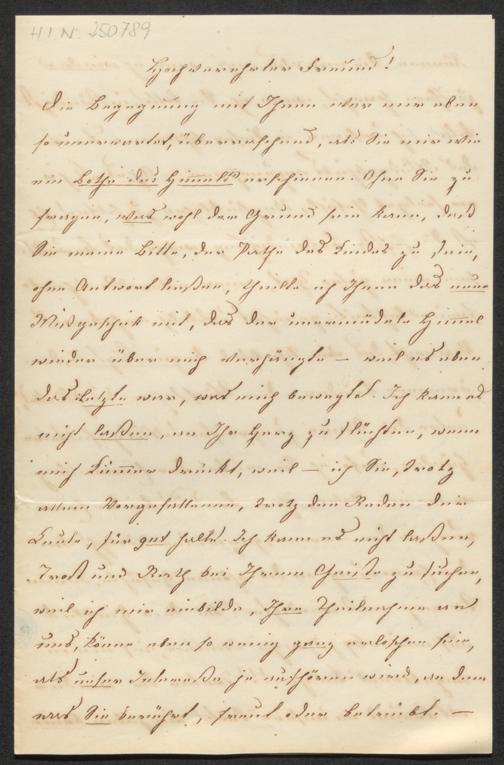 H.I.N. 250789
Hochverehrter Freund!
Die Begegnung mit Ihnen war mir eben
so unerwartet, überraschend, als Sie mir wie
ein Bothe des Himmels erschienen. Ohne Sie zu
fragen, was wohl der Grund sein kann, daß
Sie meine Bitte, der Pathe des Kindes zu sein,
ohne Antwort ließen, theilte ich Ihnen das neue
Mißgeschik mit, das der unermüdete Himmel
wieder über mich verhängte – weil es eben
das Letzte war, was mich bewegte. Ich kann es
nicht laßen, an Ihr Herz zu flüchten, wenn
mich Kummer drückt, weil – ich Sie, trotz
allem Vorgefallenen, trotz den Reden der
Leute, für gut halte. Ich kann es nicht laßen,
Trost und Rath bei Ihrem Geiste zu suchen,
weil ich mir einbilde, Ihre Theilnahme an
uns, könne eben so wenig ganz erloschen sein,
als unser Interesse je aufhören wird, an dem
was Sie berührt, freut oder betrübt. –